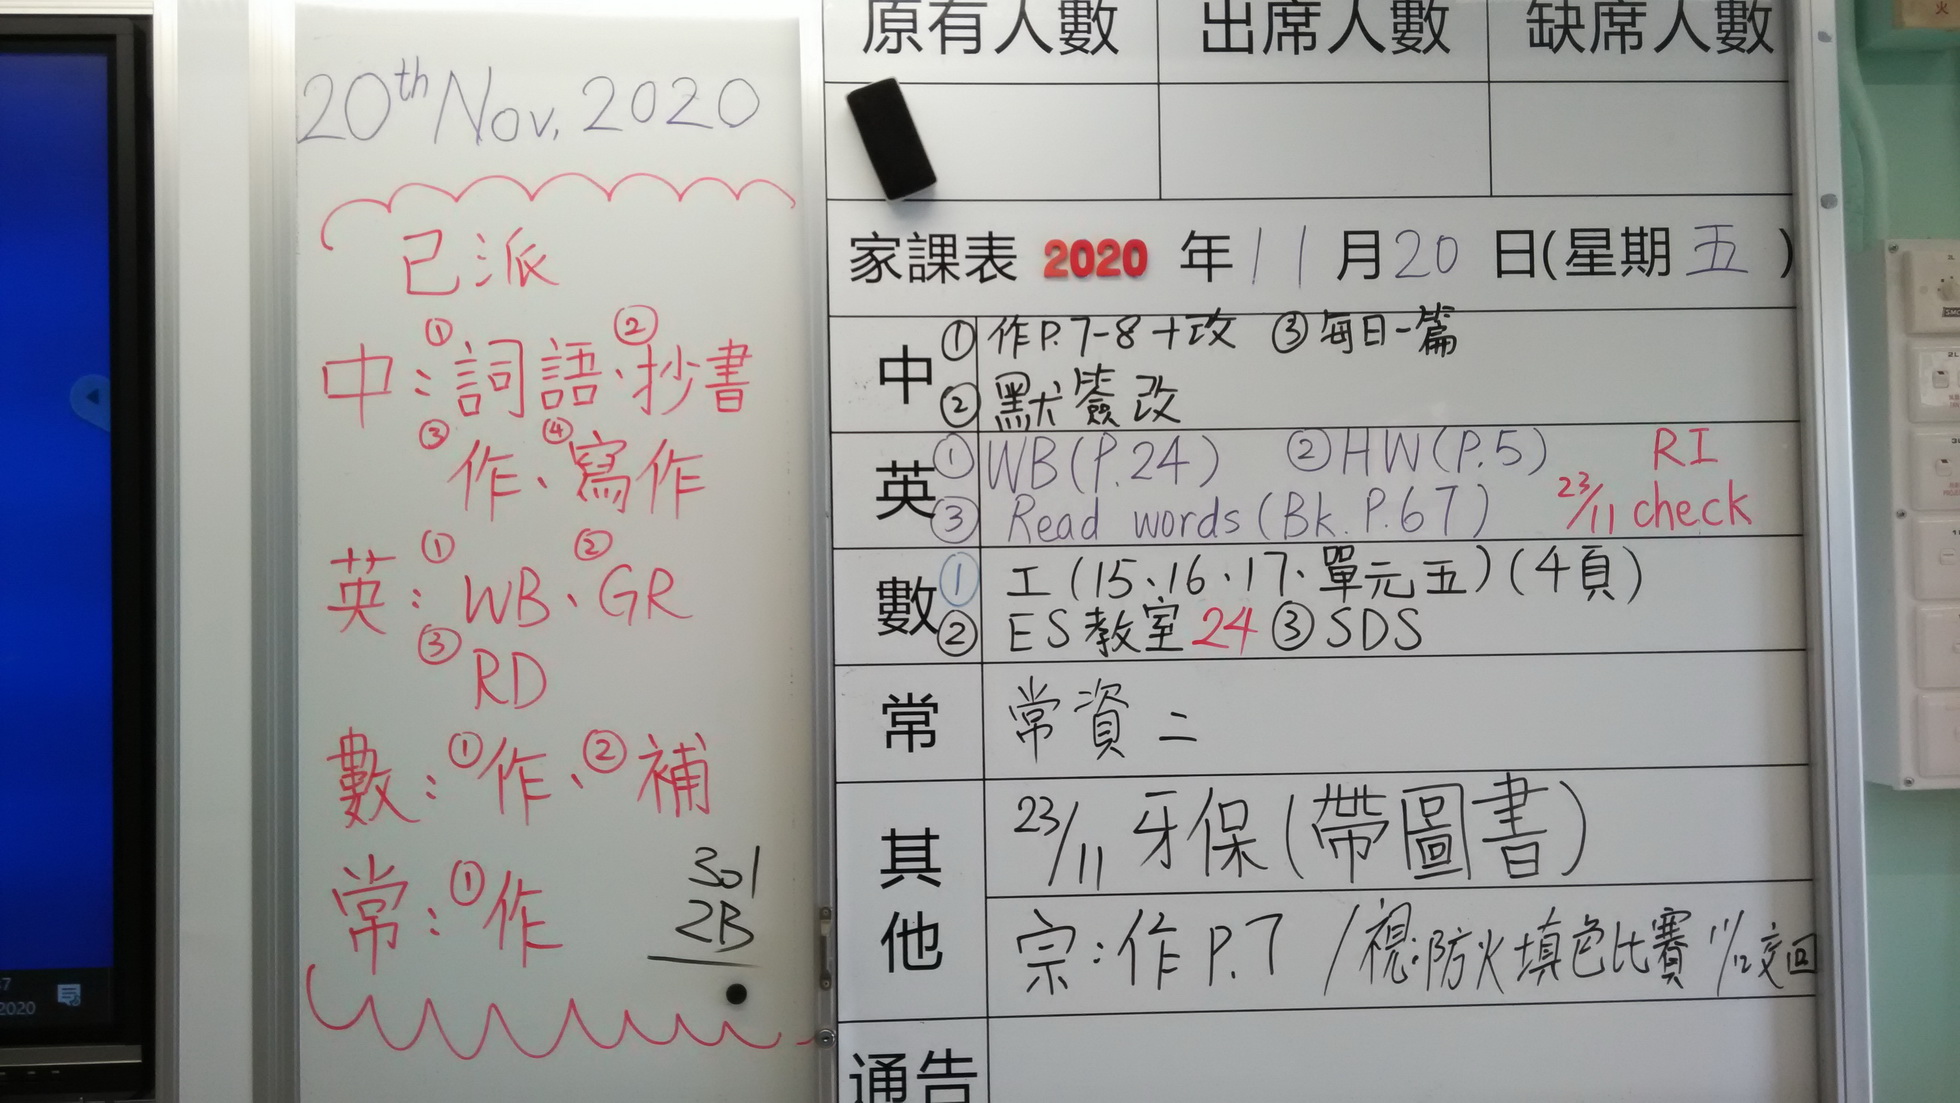 20th Nov. 2020
已派
中：①詞語、②抄書
③作、④寫作
英：①WB、②GR
③RD
數：①作、②補
常：①作
301
2B
2020
原有人數 出席人數 缺席人數
家課表 2020 年 11 月 20 日(星期 五 )
中 ①作P.7-8+改 ③每日一篇
②默簽改
英 ①WB(P.24) ②HW(P.5) RI
③Read words(Bk.P.67) 23/11 check
數 ①工(15、16、17、單元五)(4頁)
②ES教室24 ③SDS
常 常資二
其他 23/11 牙保(帶圖書)
宗：作P.7 /視：防火填色比賽 1/12交回
通告
火